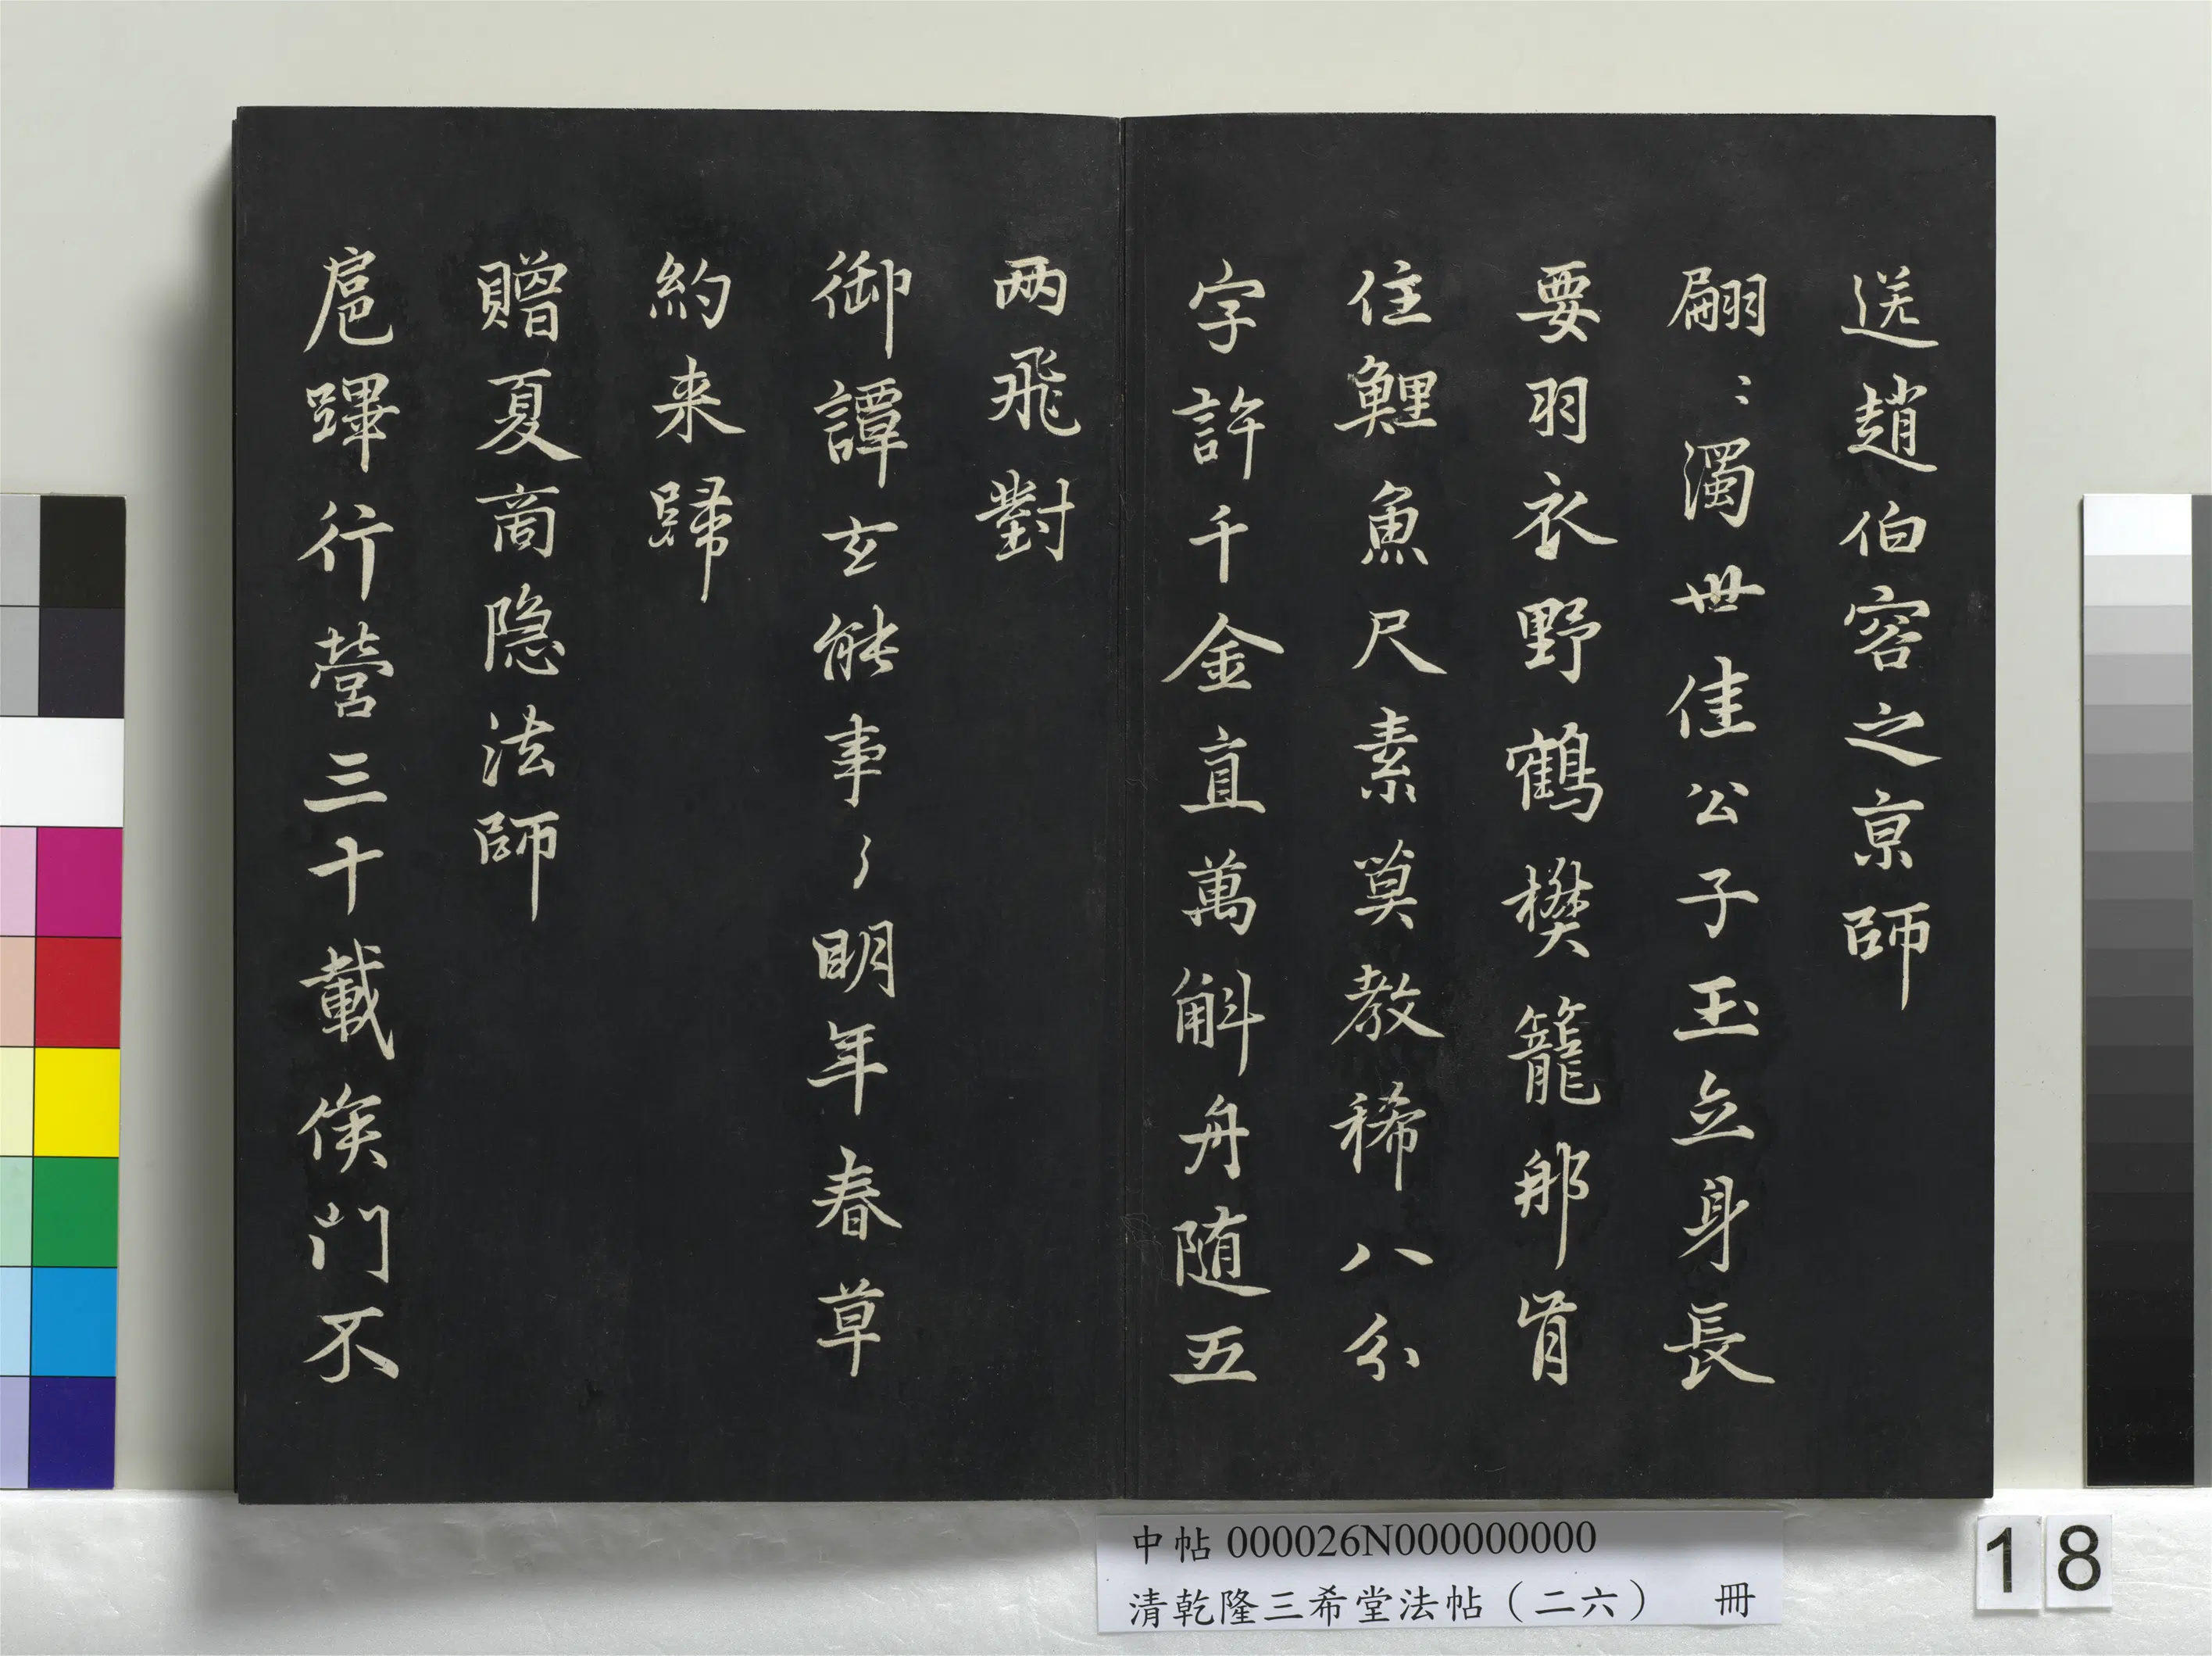 送趙伯容之京師
翩〻濁世佳公子玉立身長
要羽衣野鶴樊籠那肯
住鯉魚尺素莫教稀八分
字許千金直萬斛舟随五
两飛對
御譚玄能事了明年春草
約来歸
贈夏啇隐法師
扈蹕行營三十載侯門不
中帖 000026N000000000
清乾隆三希堂法帖（二六） 冊
18